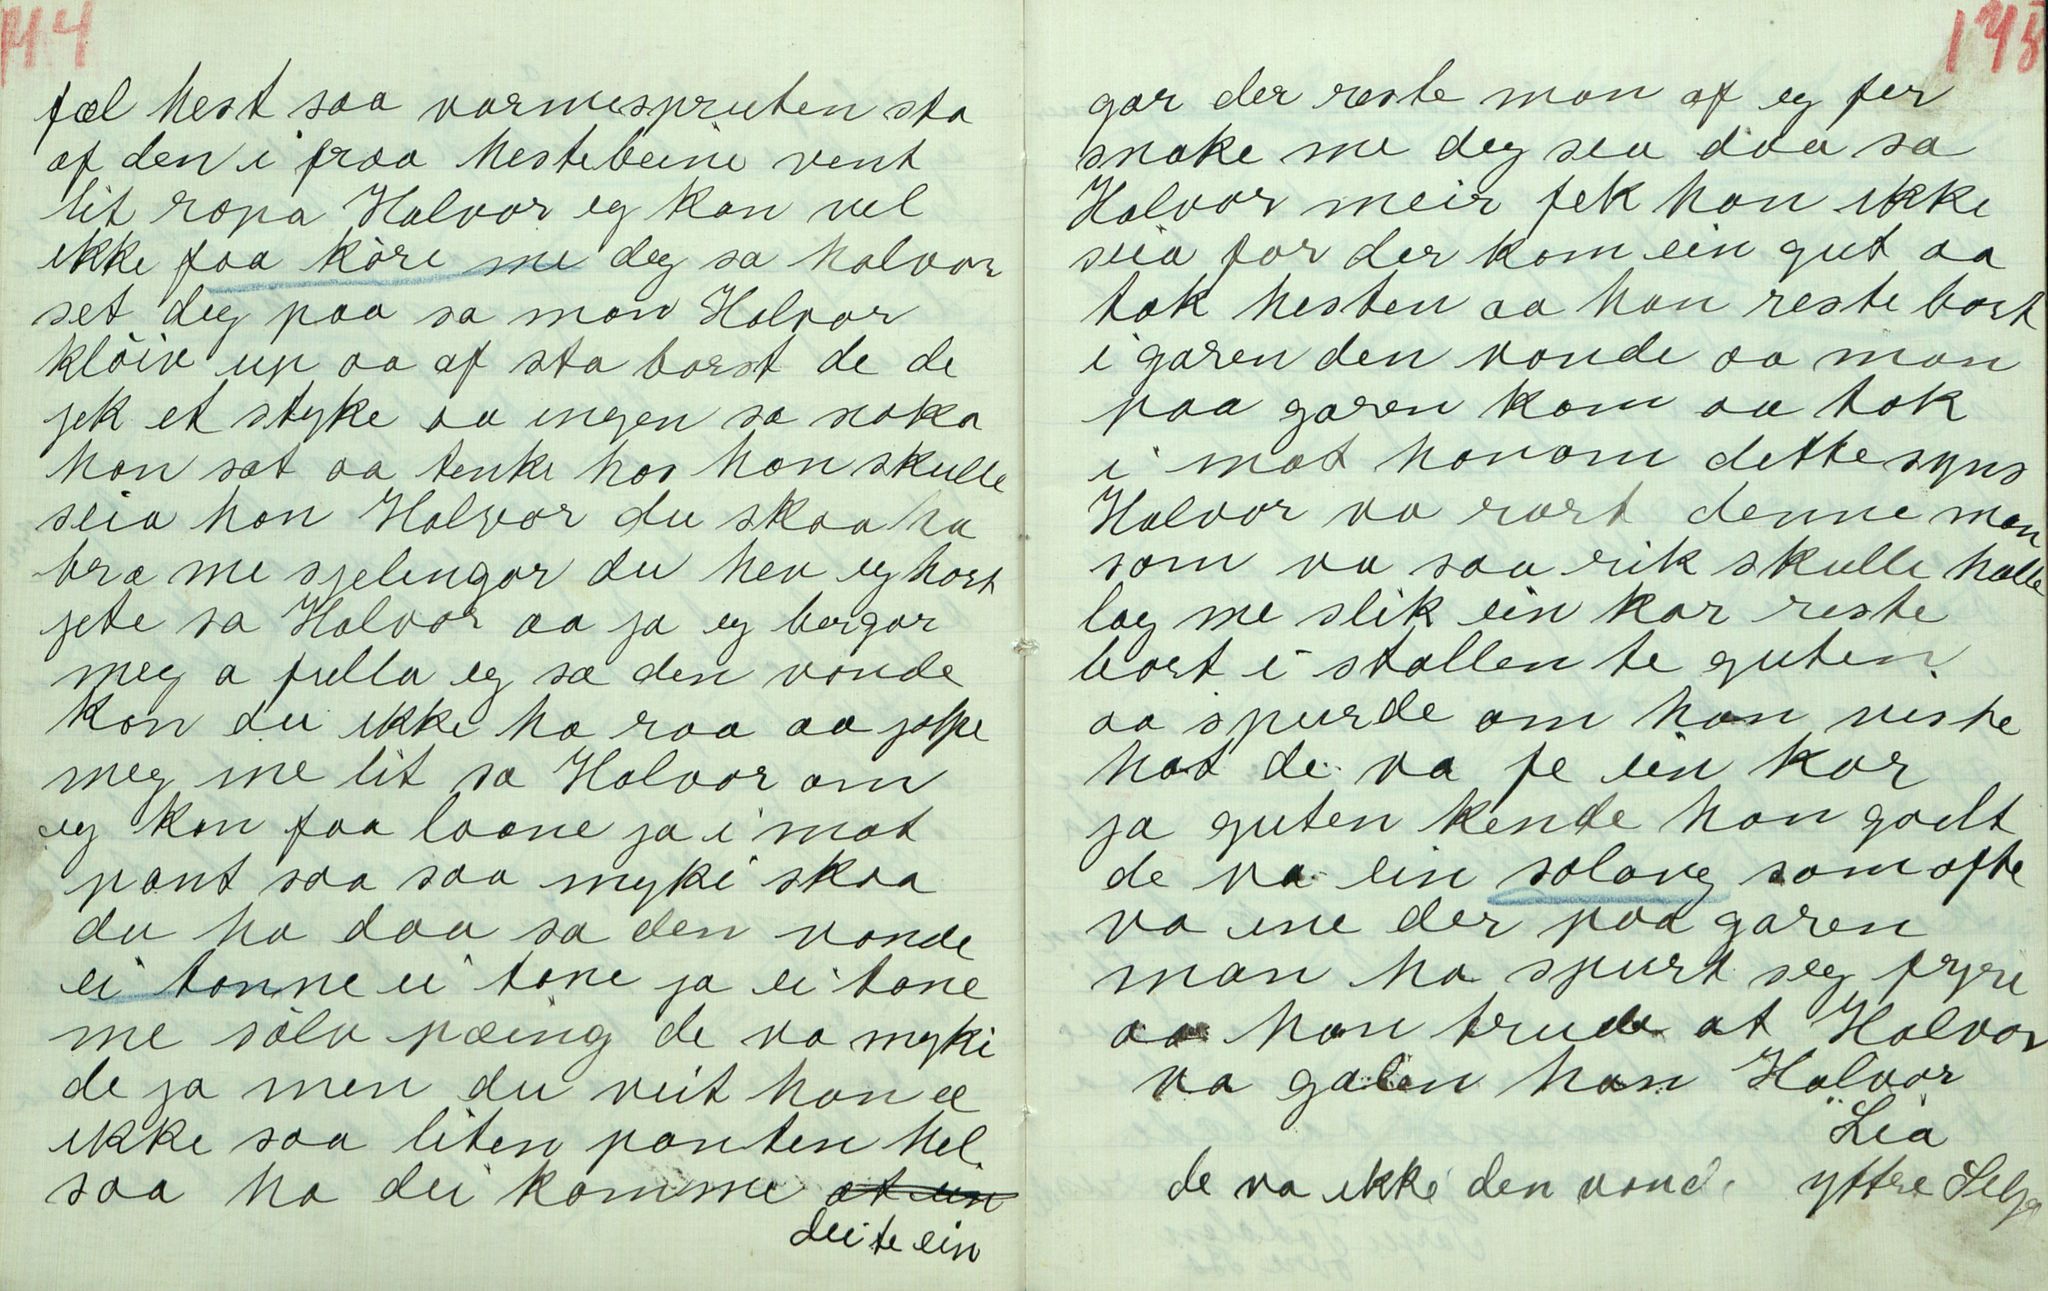 144
fæl hest saa varmespruten sta
af den i fraa hestebeine vent
lit ropa Halvor eg kan vel
ikke faa köre me deg sa halvor
set deg paa sa man Halvor
klöiv up aa af sta barst de de
jek et styke aa ingen sa noka
han sat aa tenke hos han skulle
seia han Halvor du skaa ha
bra me sjelingar du hev eg hort
jete sa Halvor aa ja eg bergar
meg a fulla eg sa den vonde
kan du ikke ha raa aa jolpe
meg me lit sa Halvor om
eg kan faa laane ja i mot
pant saa saa myke skaa
du ha daa sa den vonde
ei tonne ei tone ja ei tone
me sölv pæing de va myki
de ja men du veit han æ
ikke saa liten panten hel.
saa ha dei komme at ein
dei te ein
145
gar der reste man af eg fer
snake me deg sea daa sa
Halvor meir fek han ikke
seia for der kom ein gut aa
tok hesten aa han reste bort
i garen den vonde aa man
paa garen kom aa tok
i mot honom dette syns
Halvor va rart denne man
som va saa rik skulle halle
lag me slik ein kar reste
bort i stallen te guten
aa spurde om han viste
hot de va fe ein kar
ja guten kende han godt
de va ein solavg som ofte
va ine der paa garen
man ha spurt seg fyre
aa han trude at Halvor
va galen han Halvor
Lia
de va ikke den vond yttre Selja